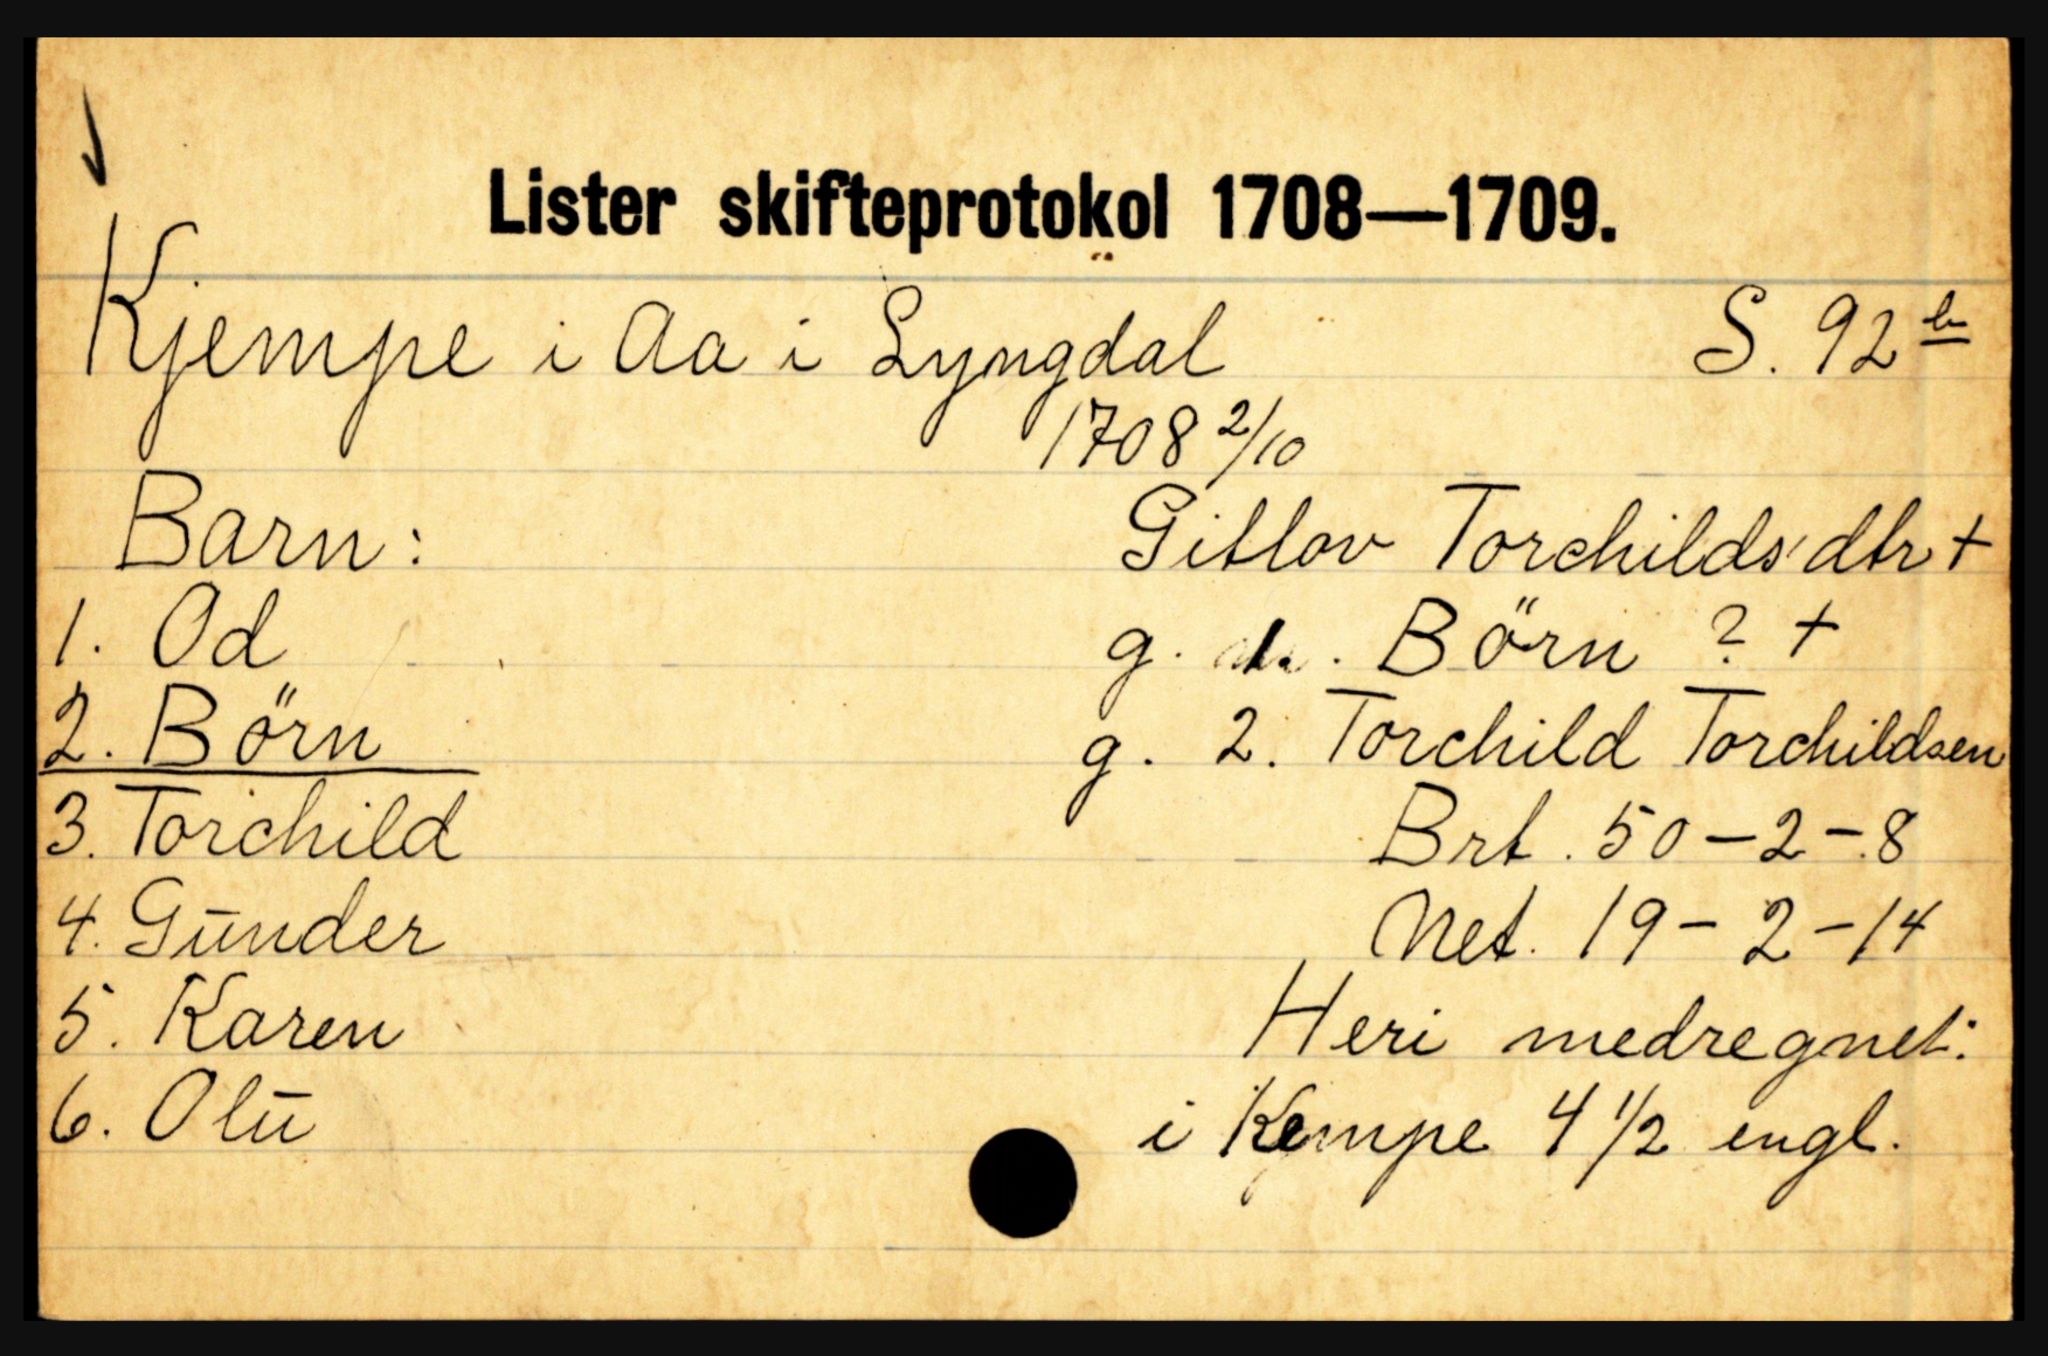 Lister skifteprotokol 1708—1709.
Kjempe i Aa i Lyngdal S. 92 b
1708 2/10
Barn: Gitlov Torchildsdtr +
1. Od g. 1. Börn ? +
2. Börn g. 2. Torchild Torchildsen
3. Torchild Brt. 50-2-8
4. Gūnder Net. 19-2-14
5. Karen Heri medregnet:
6. Olū i Kempe 4 1/2 engl.